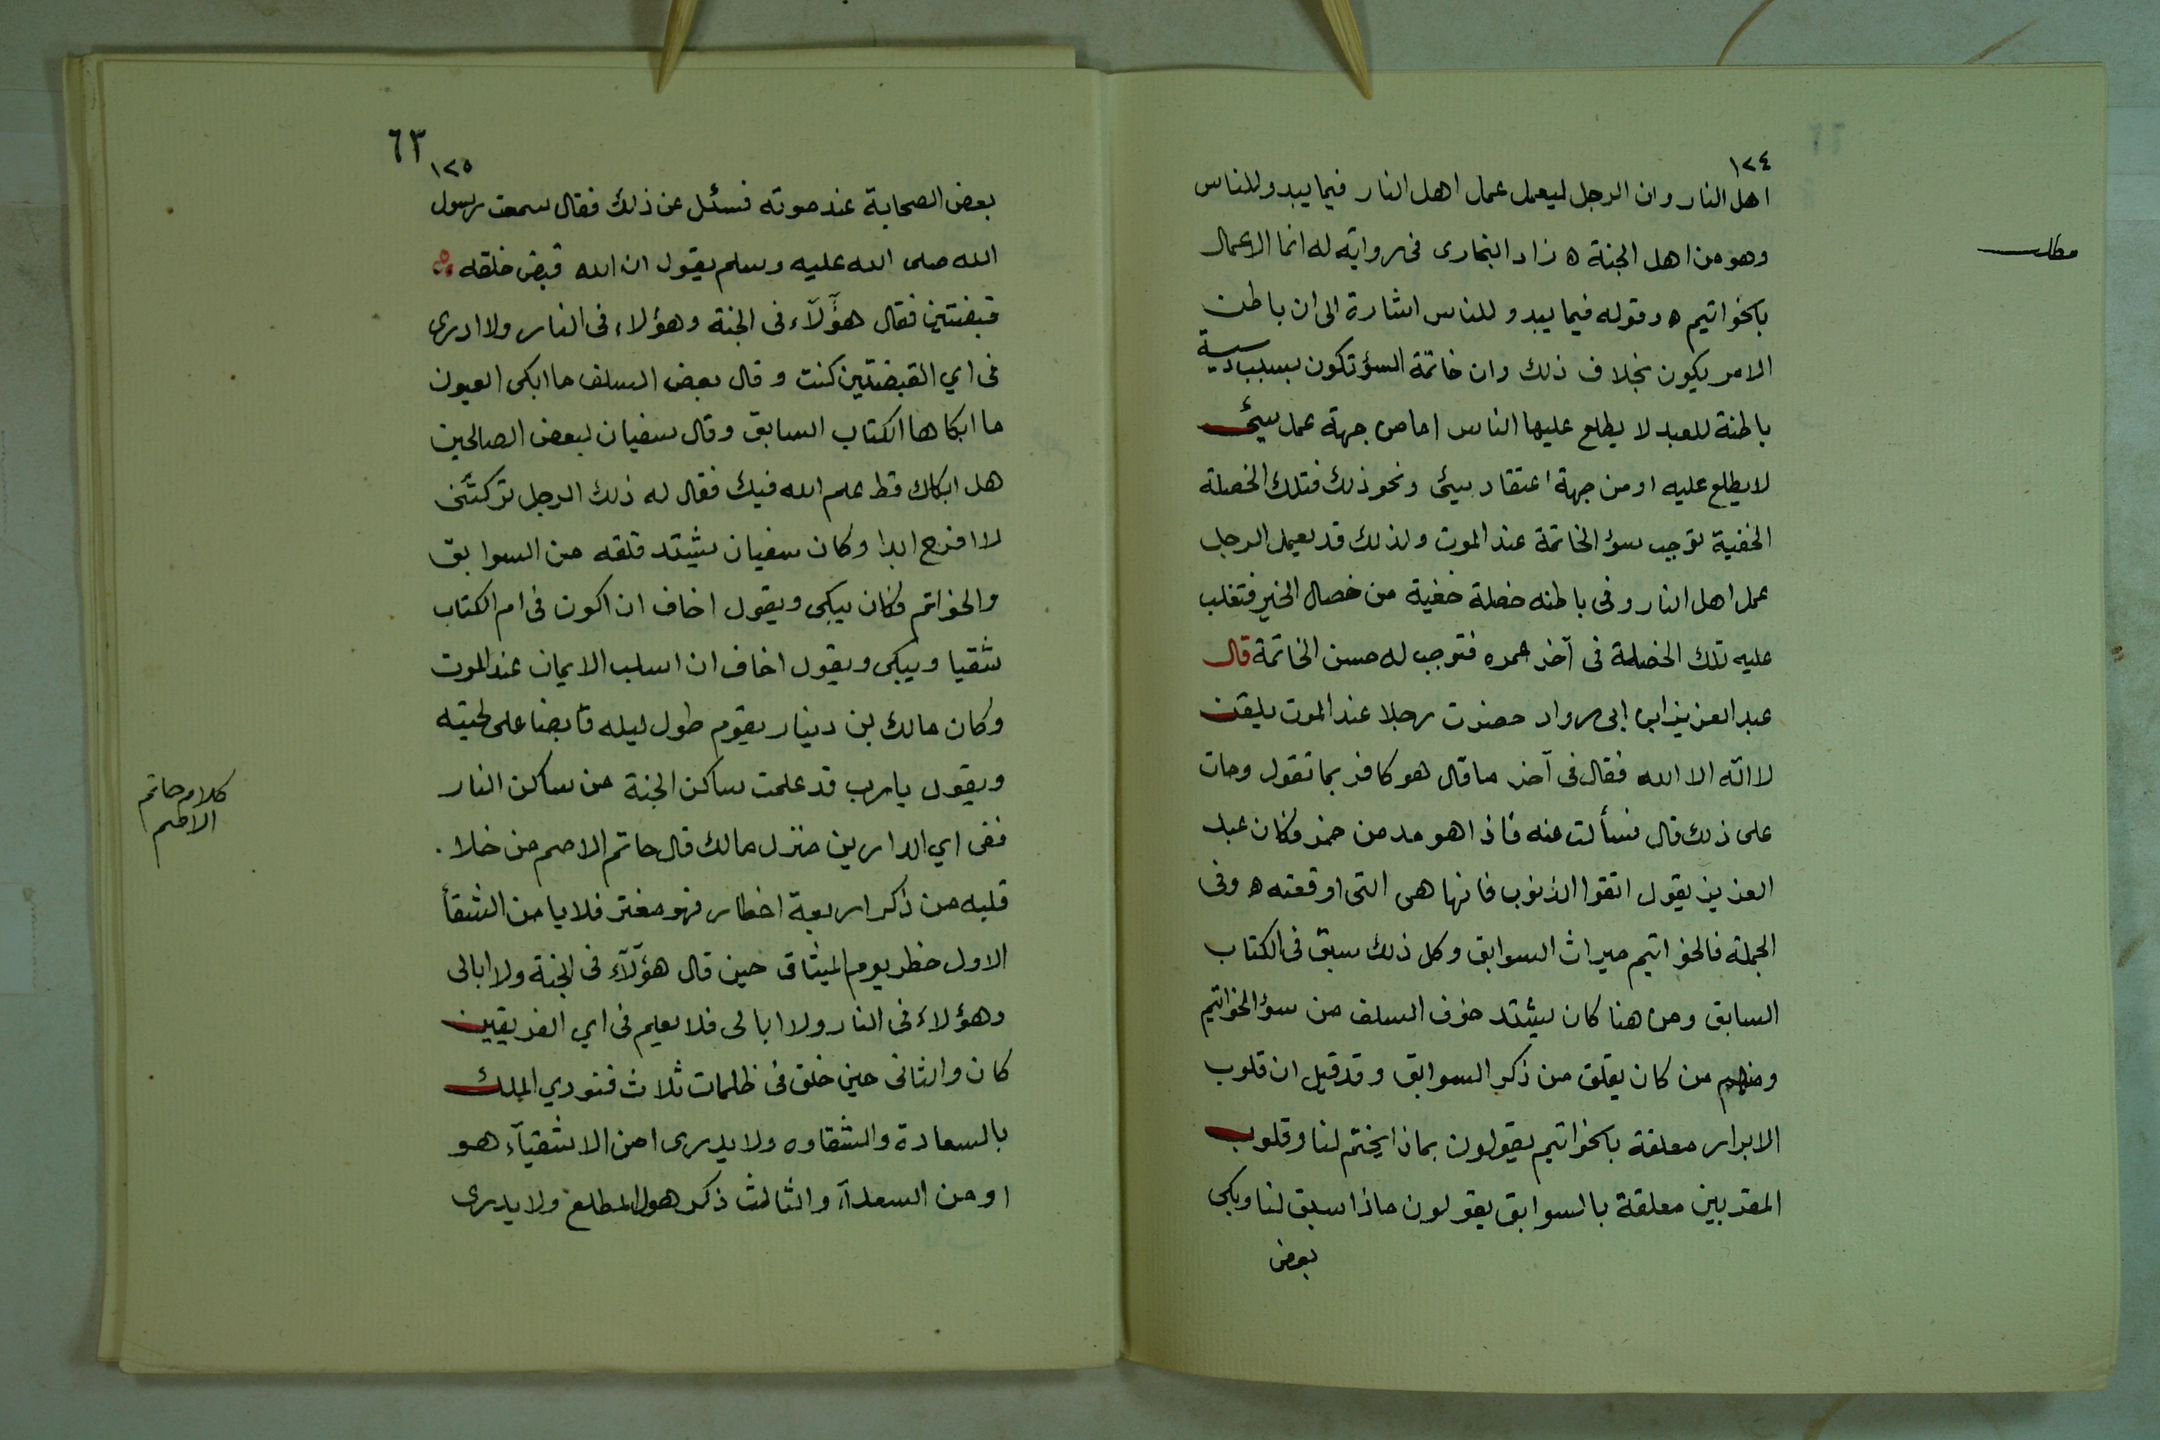 ١٢٤
اهل النار وان الرجل ليعمل عمل اهل النار فيما يبدو للناس
مطلب
وهو من اهل الجنة ه زاد البخارى فى رواية له انما الاعمال
بالخواتيم ه وقوله فيما يبدو للناس اشارة الى ان باطن
الامر يكون بخلاف ذلك وان خاتمة السؤ تكون بسبب دسيسة
باطنة للعبد لا يطلع عليها الناس اما من جهة عمل سيئ
لا يطلع عليه او من جهة اعتقاد سيئ ونحو ذلك فتلك الخصلة
الخفية توجب سؤ الخاتمة عند الموت وكذلك قد يعمل الرجل
عمل اهل النار وفى باطنه خصلة خفية من خصال الخير فتغلب
عليه تلك الخصلة فى آخر عمره فتوجب له حسن الخاتمة قال
عبد العزيز ابن ابى رواد حضرت رجلا عند الموت يلقن
لا اله الا الله فقال فى آخر ما قال هو كافر بما تقول ومات
على ذلك قال فسألت عنه فاذا هو مدمن خمر وكان عبد
العزيز يقول اتقوا الذنوب فانها هى التى اوقعته ه وفى
الجملة فالخواتيم ميراث السوابق وكل ذلك سبق فى الكتاب
السابق ومن هنا كان يشتد خوف السلف من سؤ الخواتيم
ومنهم من كان يقلق من ذكر السوابق وقد قيل ان قلوب
الابرار معلقة بالخواتيم يقولون بماذا يختم لنا وقلوب
المقربين معلقة بالسوابق يقولون ماذا سبق لنا وبكى
بعض
٦٣
١٢٥
بعض الصحابة عند موته فسئل عن ذلك فقال سمعت رسول
الله صلى الله عليه وسلم يقول ان الله قبض خلقه
قبضتين فقال هؤلآء فى الجنة وهؤلاء فى النار ولا ادرى
فى اي القبضتين كنت وقال بعض السلف ما ابكى العيون
ما ابكاها الكتاب السابق وقال سفيان لبعض الصالحين
هل ابكاك قط علم الله فيك فقال له ذلك الرجل تركتنى
لا افرح ابدا وكان سفيان يشتد قلقه من السوابق
والخواتم فكان يبكى ويقول اخاف ان اكون فى ام الكتاب
شقيا ويبكى ويقول اخاف ان اسلب الايمان عند الموت
وكان مالك بن دينار يقوم طول ليله قابضا على لحيته
ويقول يارب قد علمت ساكن الجنة من ساكن النار
كلام حاتم
الاصم
ففى اي الدارين منزل مالك قال حاتم الاصم من خلا.
قلبه من ذكر اربعة اخطار فهو مغتر فلا يامن الشقأ
الاول خطر يوم الميثاق حين قال هؤلآء فى الجنة ولا ابالى
وهؤلاء فى النار ولا ابالى فلا يعلم فى اي الفريقين
كان والثانى حين خلق فى ظلمات ثلاث فنودي الملك
بالسعادة والشقاوه ولا يدرى امن الاشقيآء هو
او من السعدآء والثالث ذكر هول المطلع ولا يدرى